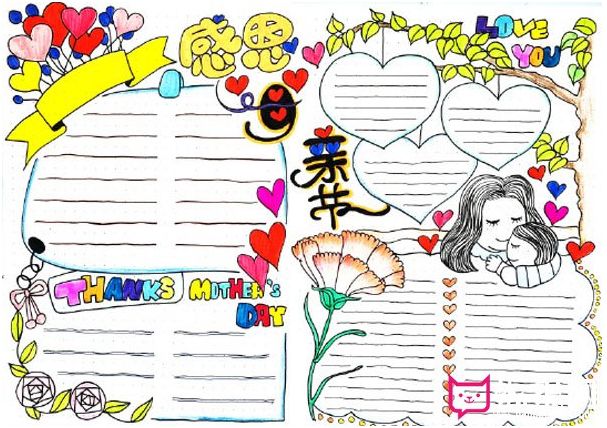 感恩
母
亲节
LOVE
YOU
THANKS
MOTHER'S
DAY